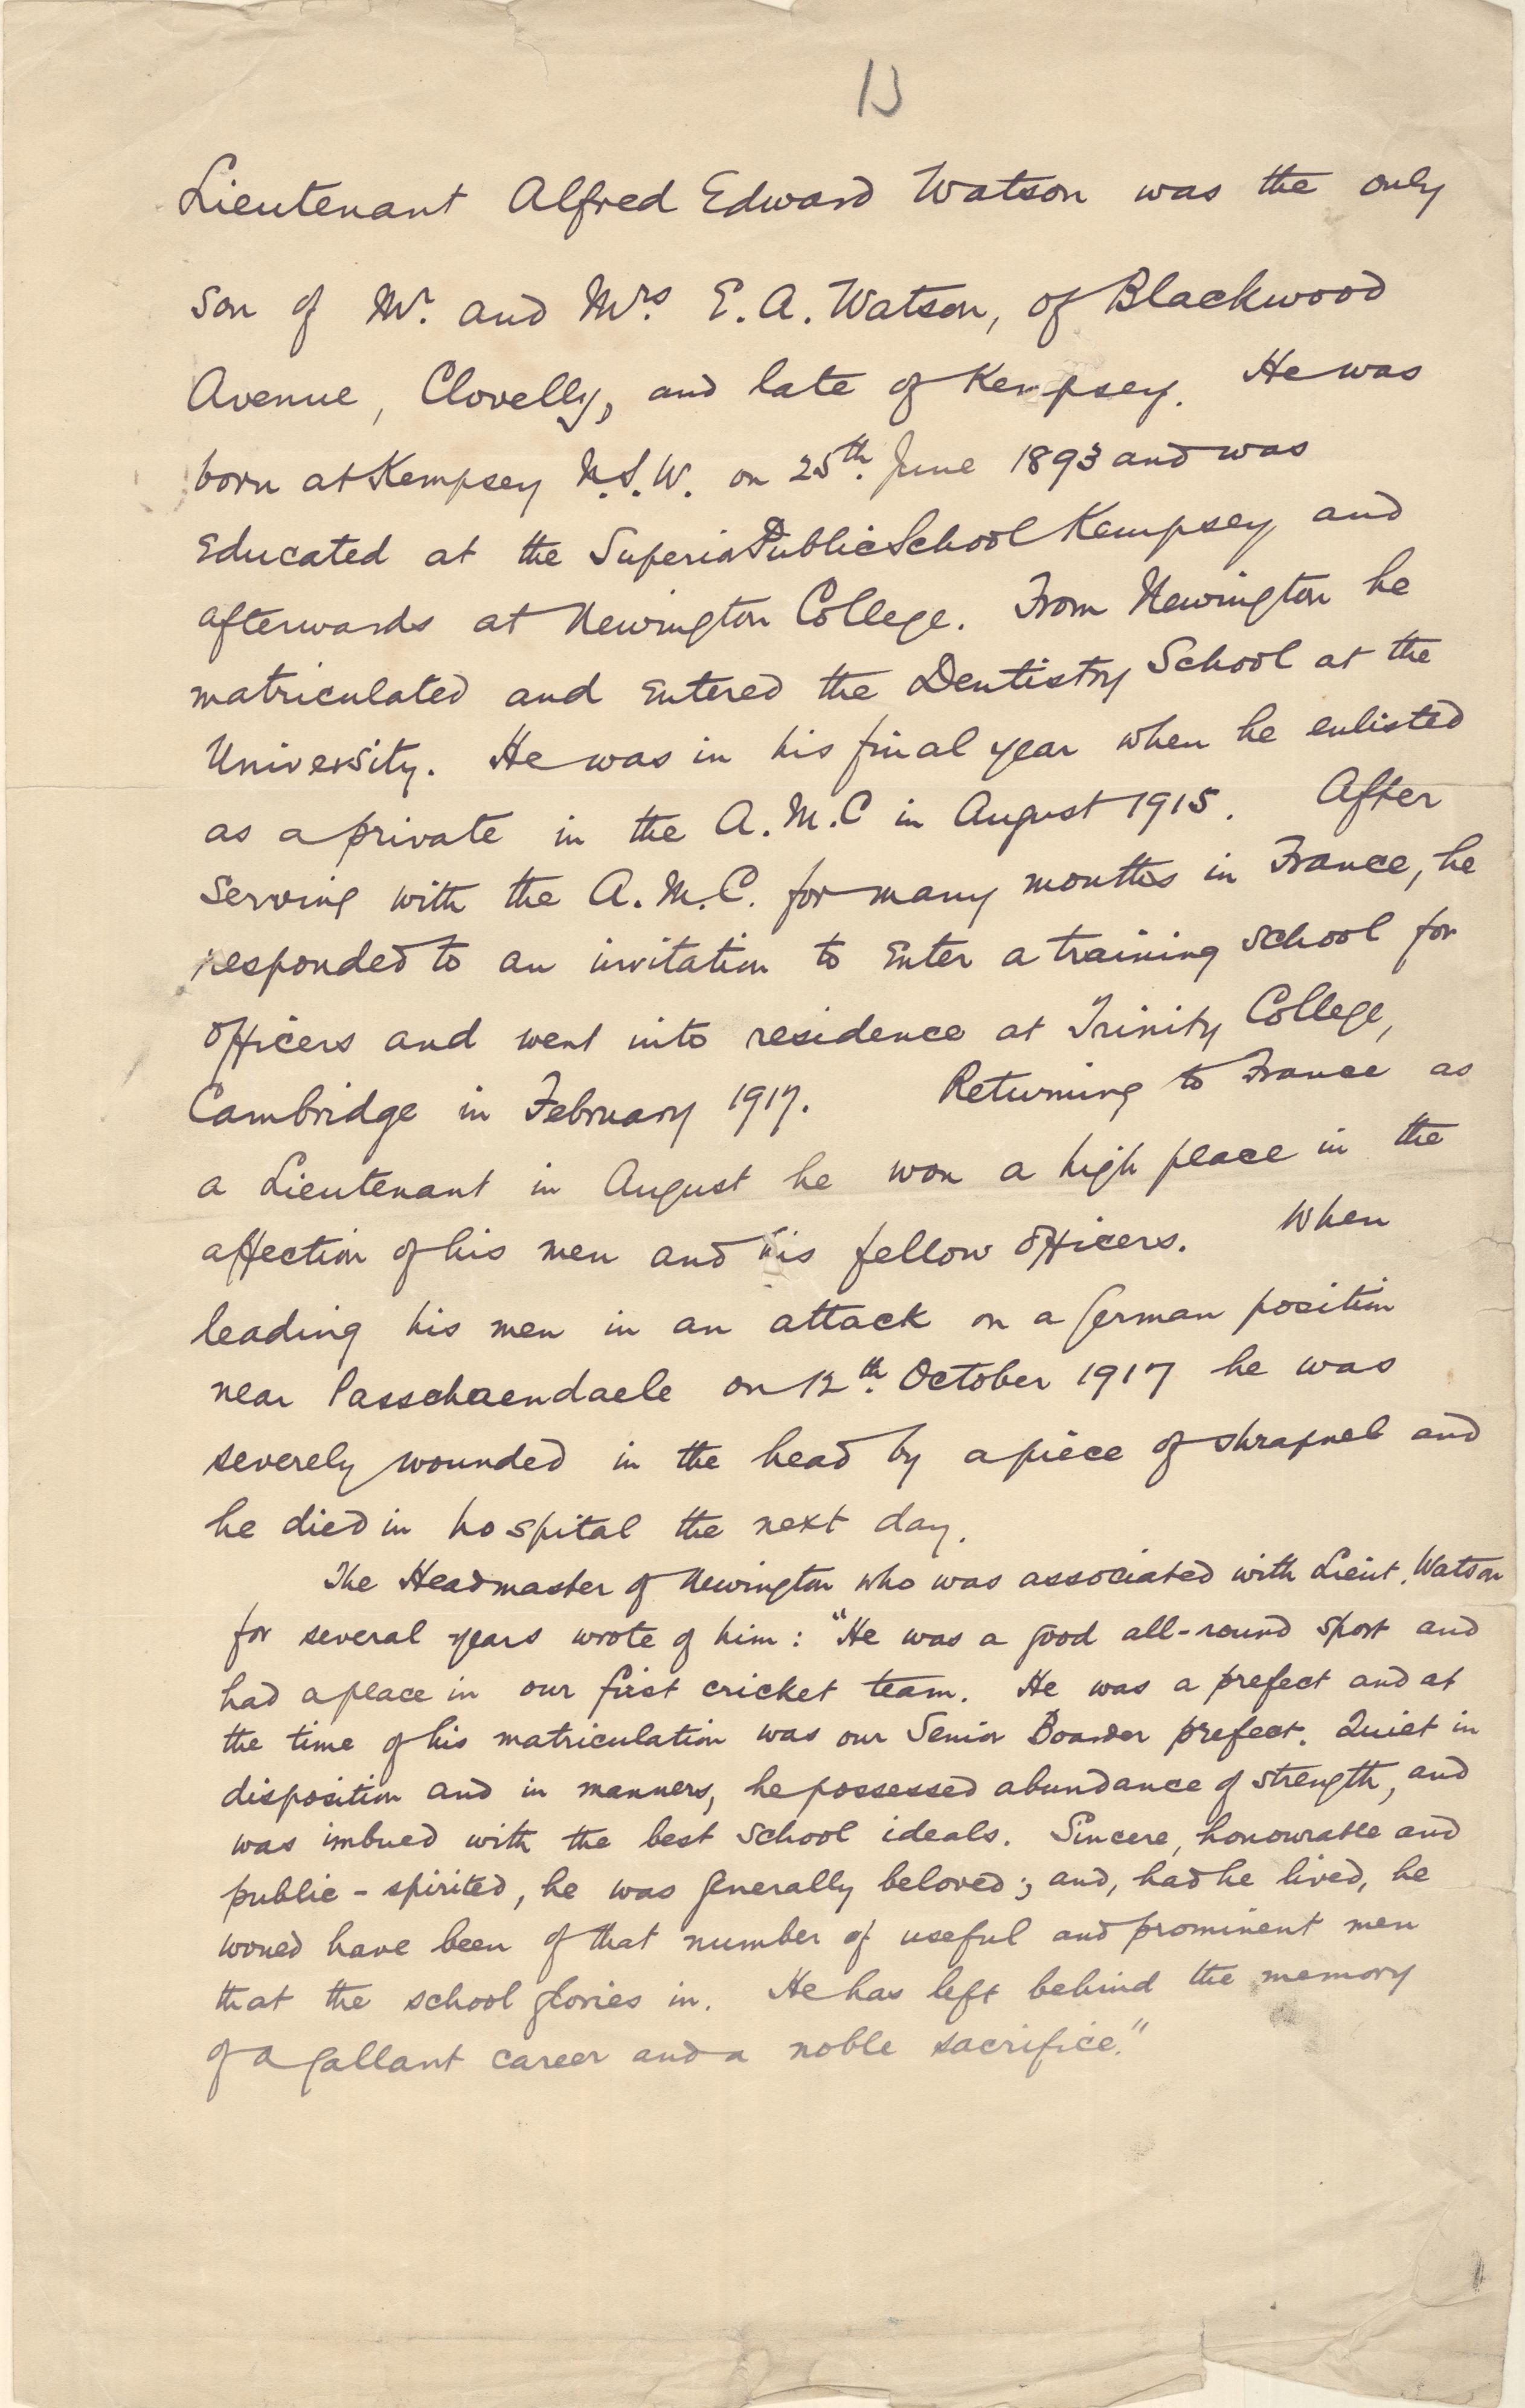 13
Lieutenant Alfred Edward Watson was the only
son of Mr. and Mrs. E. A. Watson, of Blackwood
Avenue, Clovelly, and late of Kempsey. He was
born at Kempsey N.S.W. on 25th. June 1893 and was
educated at the Superior Public School Kempsey and
afterwards at Newington College. From Newington he
matriculated and entered the Dentistry School at the
University. He was in his final year when he enlisted
as a private in the A.M.C in August 1915. After
serving with the A.M.C. for many months in France, he
responded to an invitation to enter a training school for
officers and went into residence at Trinity College,
Cambridge in February 1917. Returning to France as
a Lieutenant in August he won a high place in the
affection of his men and his fellow officers. When
leading his men in an attack on a German position
near Passchaendaele on 12th. October 1917 he was
severely wounded in the head by a piece of shrapnel and
he died in hospital the next day.
The Headmaster of Newington who was associated with Lieut. Watson
for several years wrote of him: "He was a good all-round sport and
had a place in our first cricket team. He was a prefect and at
the time of his matriculation was our Senior Boarder prefect. Quiet in
disposition and in manners, he possessed abundance of strength, and
was imbued with the best school ideals. Sincere, honourable and
public-spirited, he was generally beloved; and, had he lived, he
would have been of that number of useful and prominent men
that the school glories in. He has left behind the memory
of a gallant career and a noble sacrifice."